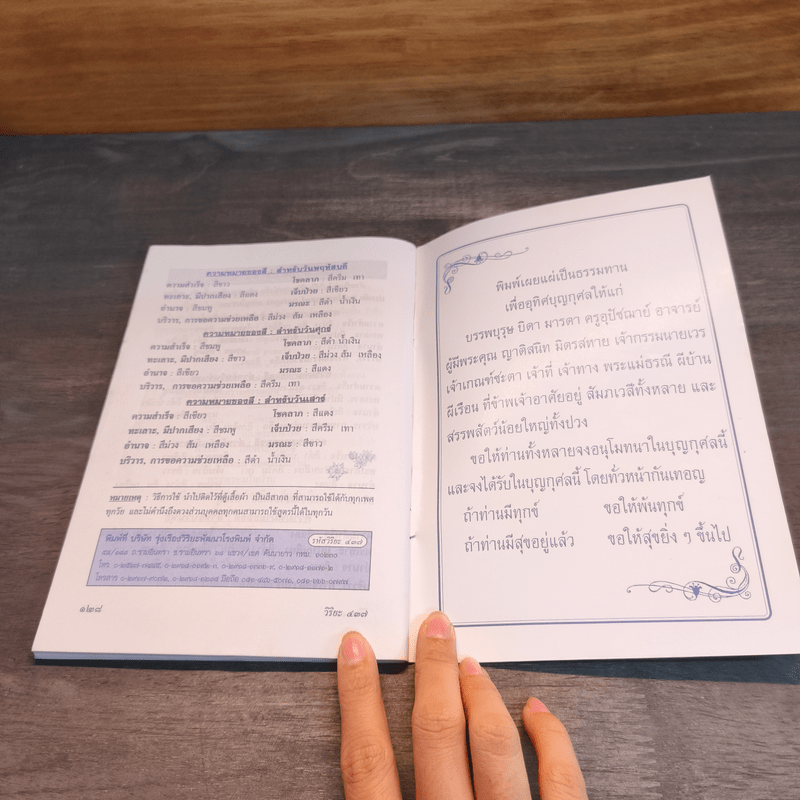 ความหมายของสี : สำหรับวันพฤหัสบดี
ความสำเร็จ : สีขาว โชคลาภ : สีครีม เทา
ทะเลาะ, มีปากเสียง : สีแดง เจ็บป่วย : สีเขียว
อำนาจ : สีชมพู มรณะ : สีดำ น้ำเงิน
บริวาร, การขอความช่วยเหลือ : สีม่วง ส้ม เหลือง
ความหมายของสี : สำหรับวันศุกร์
ความสำเร็จ : สีชมพู โชคลาภ : สีดำ น้ำเงิน
ทะเลาะ, มีปากเสียง : สีขาว เจ็บป่วย : สีม่วง ส้ม เหลือง
อำนาจ : สีเขียว มรณะ : สีแดง
บริวาร, การขอความช่วยเหลือ : สีครีม เทา
ความหมายของสี : สำหรับวันเสาร์
ความสำเร็จ : สีเขียว โชคลาภ : สีแดง
ทะเลาะ, มีปากเสียง : สีชมพู เจ็บป่วย : สีครีม เทา
อำนาจ : สีม่วง ส้ม เหลือง มรณะ : สีขาว
บริวาร, การขอความช่วยเหลือ : สีดำ น้ำเงิน
หมายเหตุ : วิธีการใช้ นำไปติดไว้ที่ตู้เสื้อผ้า เป็นสีสากล ที่สามารถใช้ได้กับทุกเพศ
ทุกวัย และไม่คำนึงถึงดวงส่วนบุคคลทุกคนสามารถใช้สูตรนี้ได้ในทุกวัน
พิมพ์ที่ บริษัท รุ่งเรืองวิริยะพัฒนาโรงพิมพ์ จำกัด รหัสวิริยะ ๔๓๗
๑๒๘ วิริยะ ๔๓๗
พิมพ์เผยแผ่เป็นธรรมทาน
เพื่ออุทิศบุญกุศลให้แก่
บรรพบุรุษ บิดา มารดา ครูอุปัชฌาย์ อาจารย์
ผู้มีพระคุณ ญาติสนิท มิตรสหาย เจ้ากรรมนายเวร
เจ้าเกณฑ์ชะตา เจ้าที่ เจ้าทาง พระแม่ธรณี ผีบ้าน
ผีเรือน ที่ข้าพเจ้าอาศัยอยู่ สัมภเวสีทั้งหลาย และ
สรรพสัตว์น้อยใหญ่ทั้งปวง
ขอให้ท่านทั้งหลายจงอนุโมทนาในบุญกุศลนี้
และจงได้รับในบุญกุศลนี้ โดยทั่วหน้ากันเทอญ
ถ้าท่านมีทุกข์ ขอให้พ้นทุกข์
ถ้าท่านมีสุขอยู่แล้ว ขอให้สุขยิ่ง ๆ ขึ้นไป